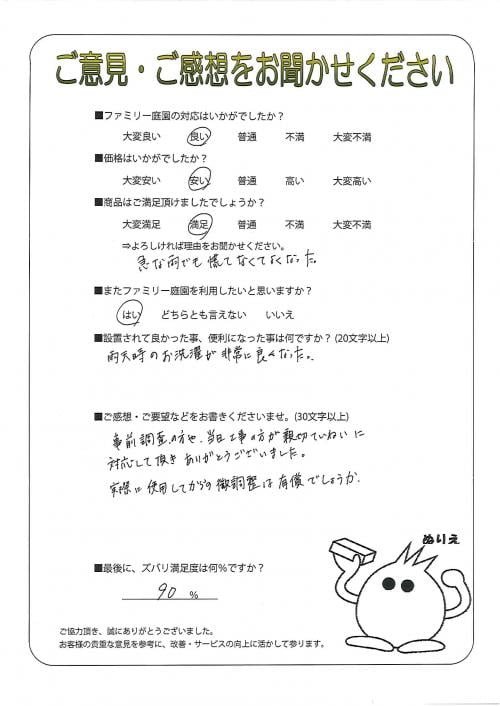 ご意見・ご感想をお聞かせください
■ファミリー庭園の対応はいかがでしたか？
大変良い 良い 普通 不満 大変不満
■価格はいかがでしたか？
大変安い 安い 普通 高い 大変高い
■商品はご満足頂けましたでしょうか？
大変満足 満足 普通 不満 大変不満
⇒よろしければ理由をお聞かせください。
急な雨でも慌てなくてよくなった。
■またファミリー庭園を利用したいと思いますか？
はい どちらとも言えない いいえ
■設置されて良かった事、便利になった事は何ですか？(20文字以上)
雨天時のお洗濯が非常に良くなった。
■ご感想・ご要望などをお書きくださいませ。(30文字以上)
事前調査の方や、当日工事の方が親切ていねいに
対応して頂きありがとうございました。
実際に使用してからの微調整は有償でしょうか。
ぬりえ
■最後に、ズバリ満足度は何%ですか？
90 %
ご協力頂き、誠にありがとうございました。
お客様の貴重な意見を参考に、改善・サービスの向上に活かして参ります。